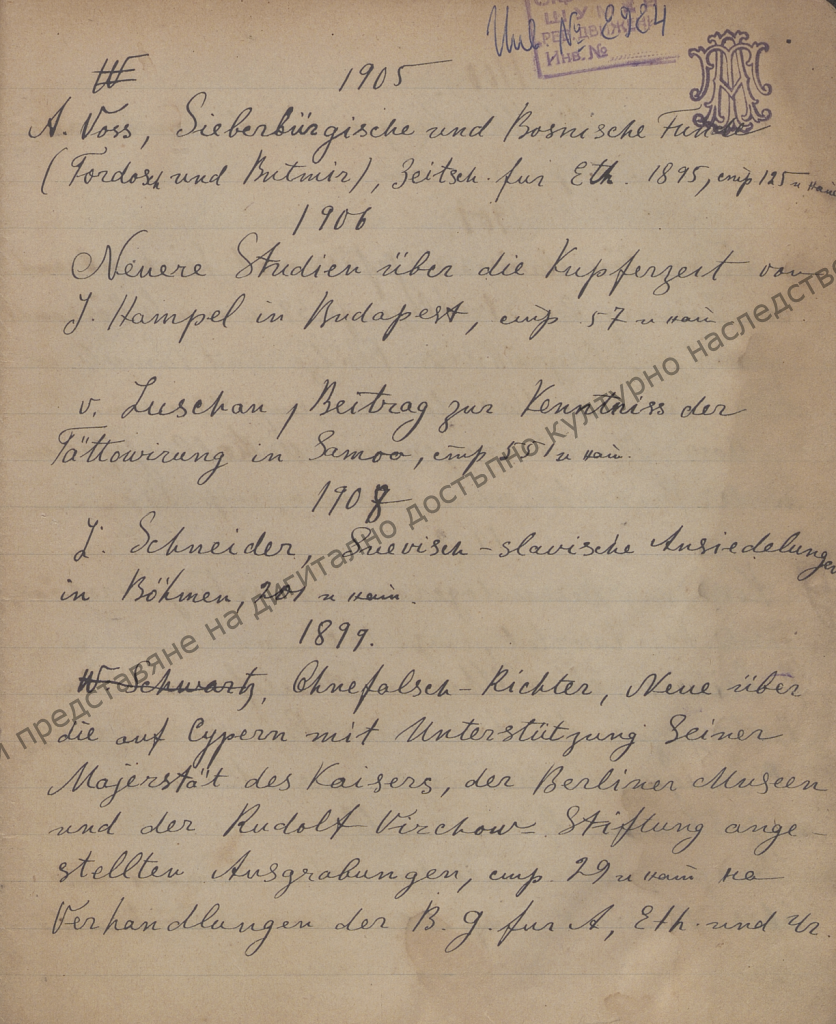 Инв. № 2984
Инв. №
1905
A. Voss, Sieberbürgische und Bosnische Funde
(Tordosch und Butmir), Zeitsch. fur Eth. 1895, стр 125 и нат
1906
Neuere Studien über die Kupferzeit von
J. Hampel in Budapest, стр 57 и нат
v. Luschan, Beitrag zur Kenntniss der
Tättowirung in Samoa, стр 551 и нат.
1908
L. Schneider, Suevisch-slavische Ansiedelungen
in Böhmen, и нат.
1899.
W. Schwartz, Ohnefalsch-Richter, Neue über
die auf Cypern mit Unterstützung Seiner
Majerstät des Kaisers, der Berliner Museen
und der Rudolf Virchow-Stiftung ange-
stellten Ausgrabungen, стр 29 и нат на
Verhandlungen der B. G. fur A, Eth. und Ur.
и представяне на дигитално достъпно културно наследство